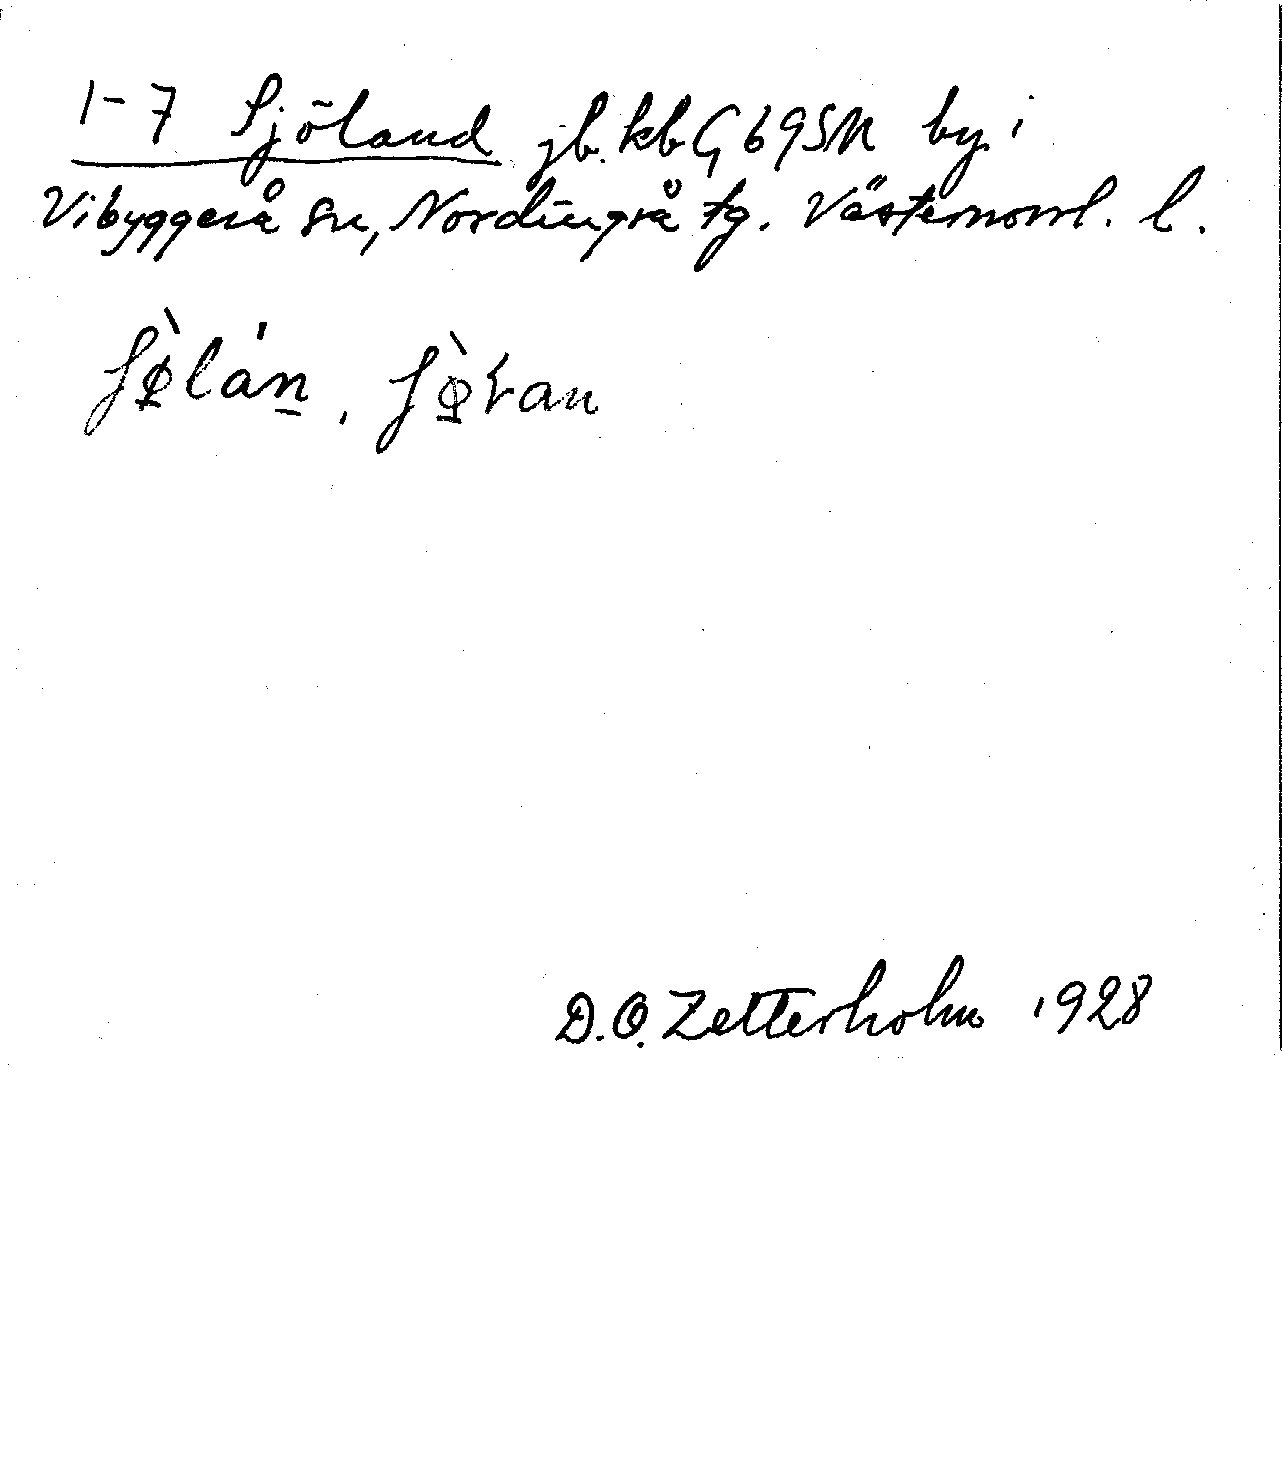 1-7 Sjöland jb. kb G69SN by i
Vibyggerå sn, Nordingrå tg. Västernorrl. l.
D.O. Zetterholm 1928